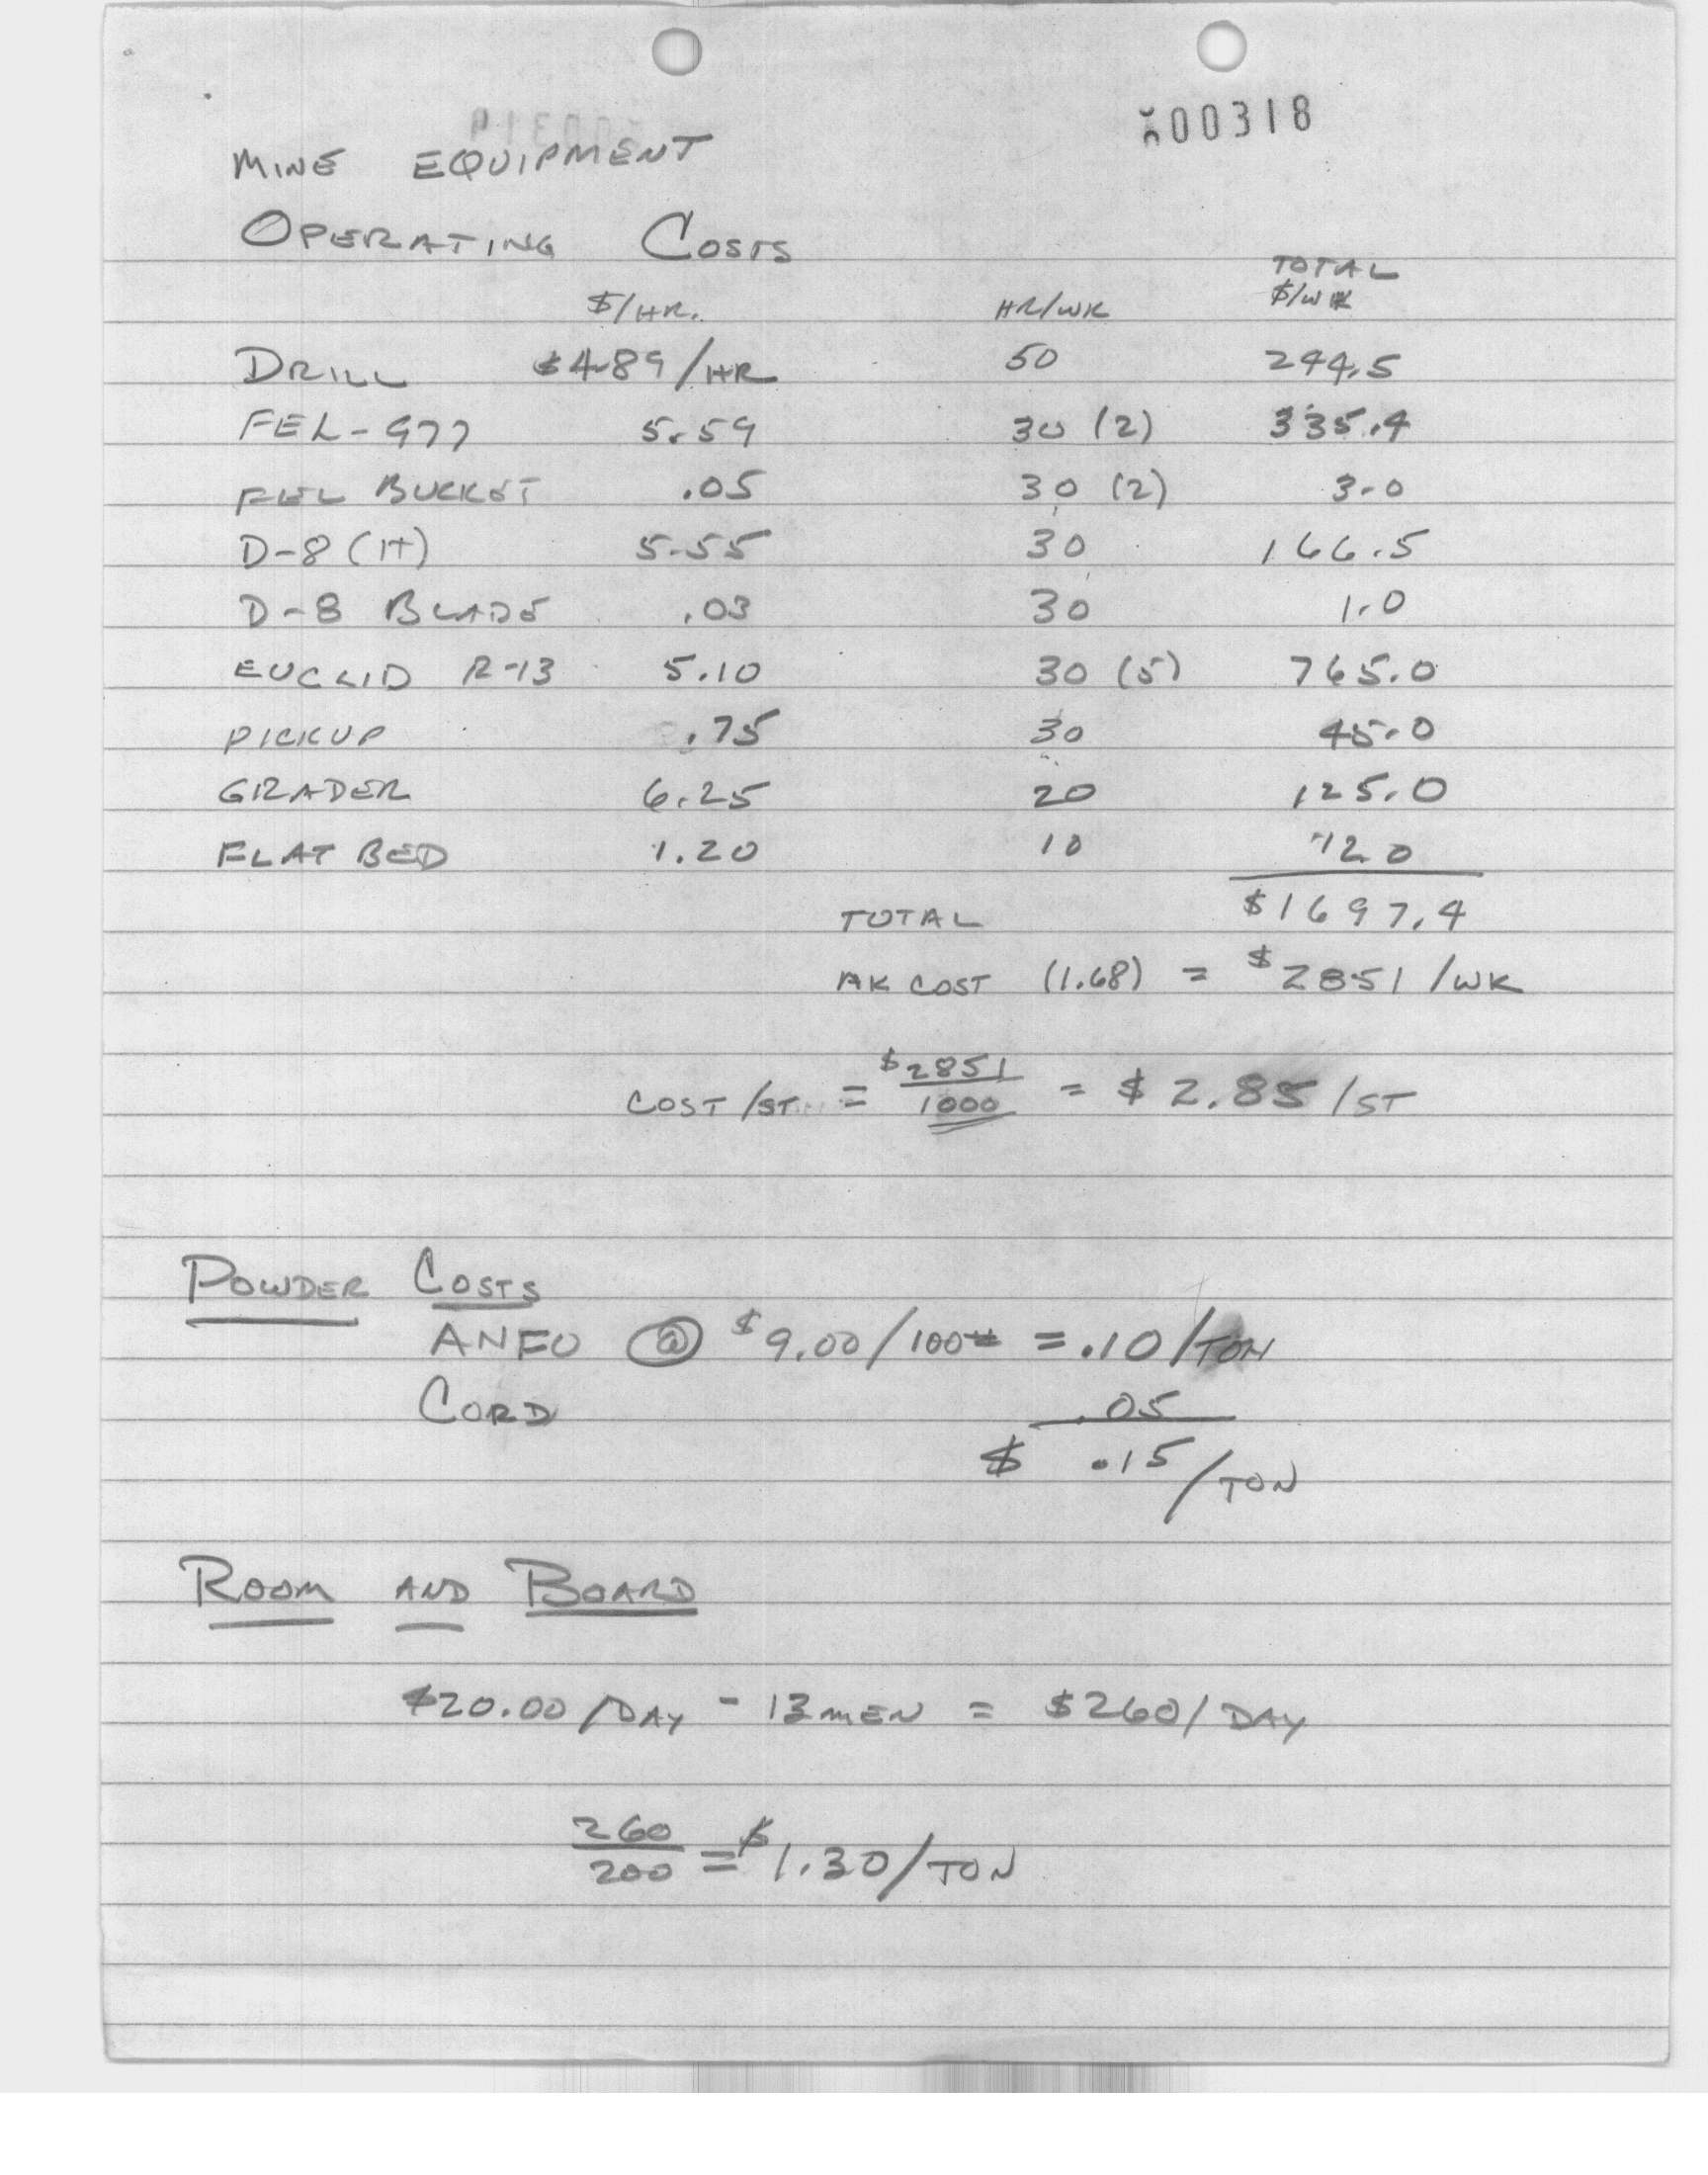 000318
MINE EQUIPMENT
OPERATING COSTS
$/HR. HR/WK TOTAL $/WK
DRILL $4.89/HR 50 244.5
FEL-977 5.59 30 (2) 335.4
FEL BUCKET .05 30 (2) 3.0
D-8 (H) 5.55 30 166.5
D-8 BLADE .03 30 1.0
EUCLID R-13 5.10 30 (5) 765.0
PICKUP .75 30 45.0
GRADER 6.25 20 125.0
FLAT BED 1.20 10 12.0
TOTAL $1697.4
AK COST (1.68) = $2851/WK
COST/ST = $2851/1000 = $2.85/ST
POWDER COSTS
ANFO @ $9.00/100# = .10/TON
CORD .05
$ .15/TON
ROOM AND BOARD
$20.00/DAY - 13 MEN = $260/DAY
260/200 = $1.30/TON